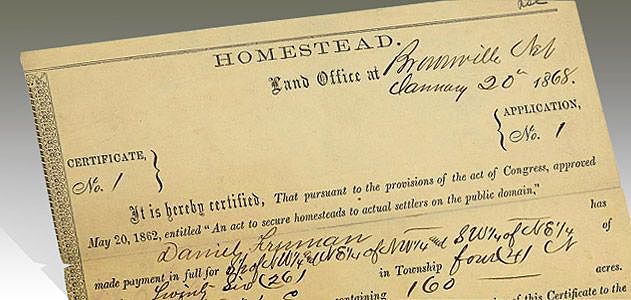 HOMESTEAD.
Land Office at Brownville Neb
January 20th 1868.
CERTIFICATE,
No. 1
APPLICATION,
No. 1
It is hereby certified, That pursuant to the provisions of the act of Congress, approved
May 20, 1862, entitled "An act to secure homesteads to actual settlers on the public domain,"
Daniel Freeman has
made payment in full for of NW¼ and SW¼ of NE¼ of
Twenty Six (26) in Township four (4) N
containing 160 acres.
of this Certificate to the